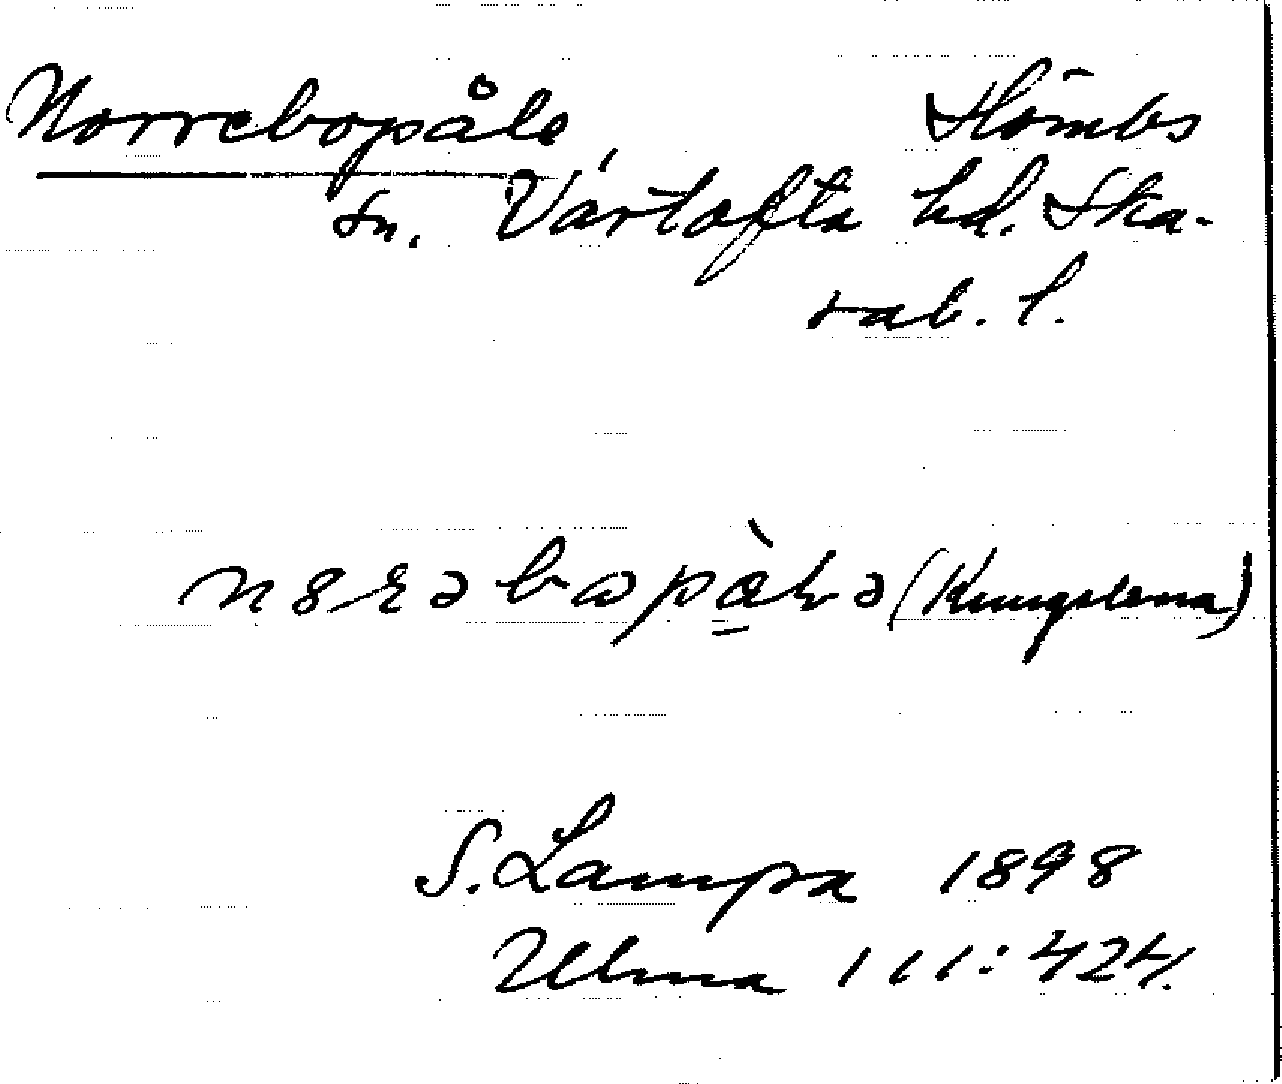 Norrebopåle, Hömbs
sn. Vartofta hd. Ska-
rab. l.
(Kungslena)
S. Lampa 1898
Ulma 111:424.